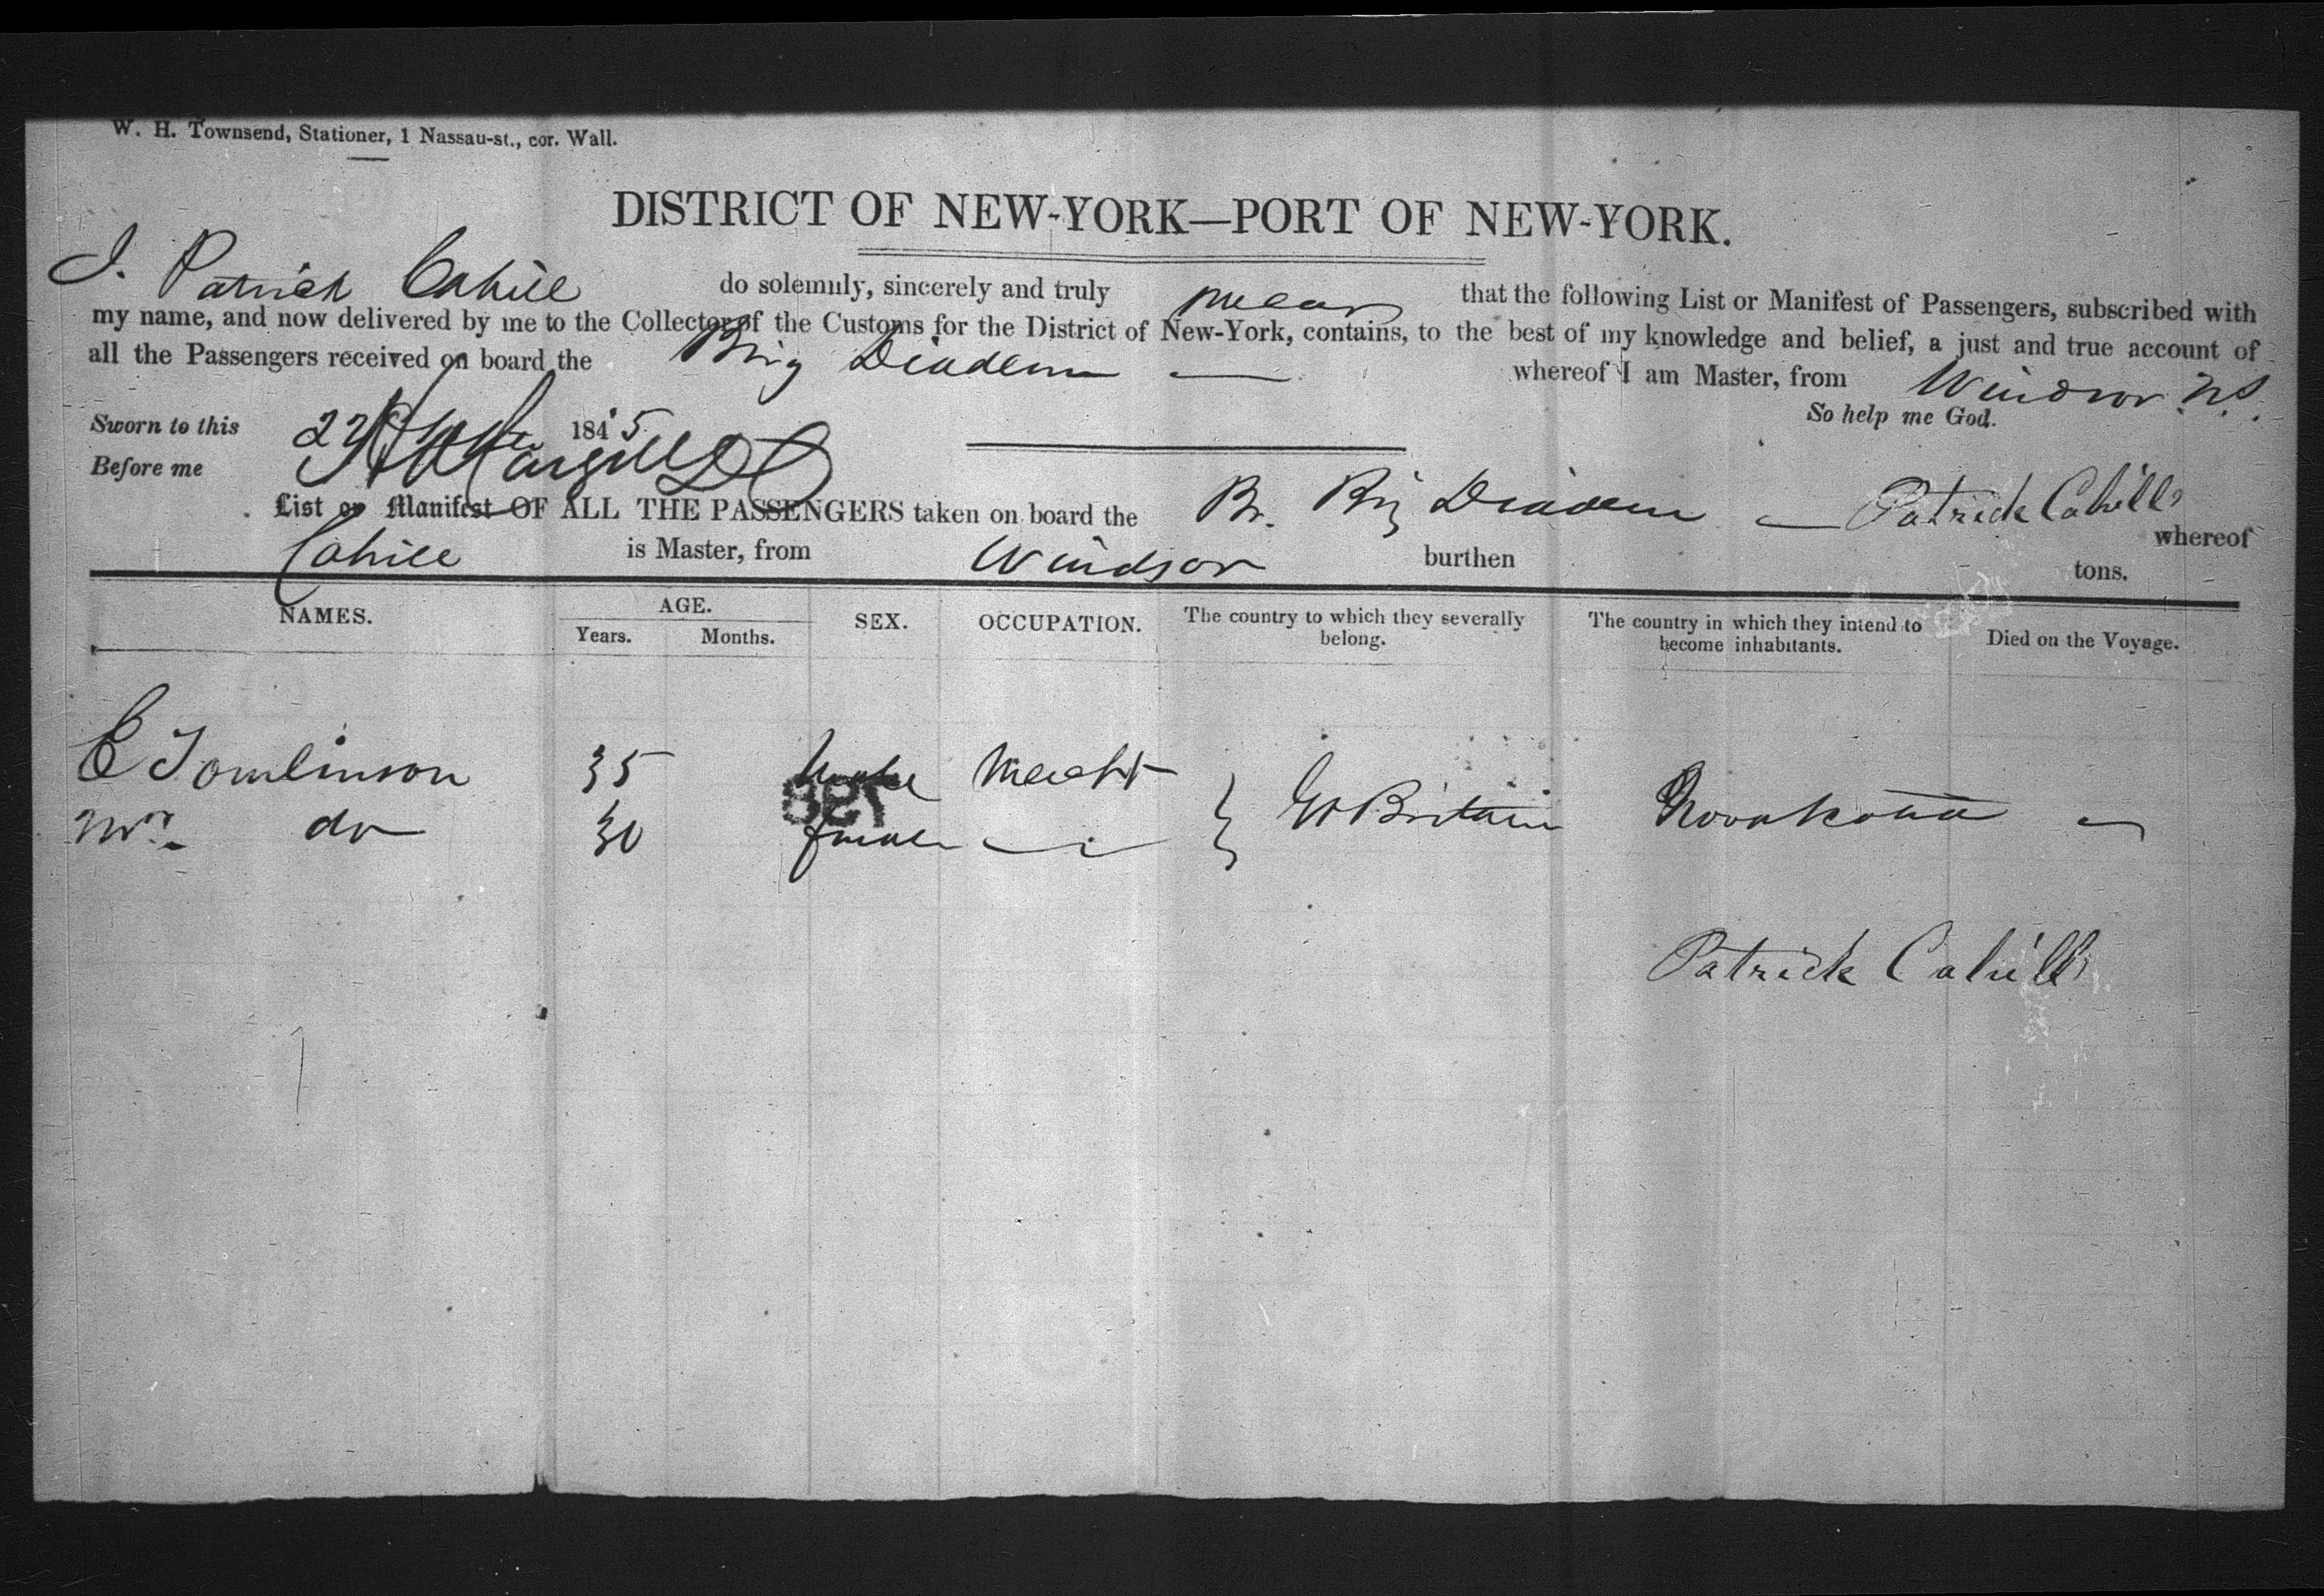 W. H. Townsend, Stationer, 1 Nassau-st., cor. Wall.
DISTRICT OF NEW-YORK—PORT OF NEW-YORK.
I. Patrick Cahill do solemnly, sincerely and truly swear that the following List or Manifest of Passengers, subscribed with
my name, and now delivered by me to the Collector of the Customs for the District of New-York, contains, to the best of my knowledge and belief, a just and true account of
all the Passengers received on board the Brig Diadem whereof I am Master, from Windsor N.S.
So help me God.
Sworn to this 22 1845
Before me
List or Manifest OF ALL THE PASSENGERS taken on board the Br. Brig Diadem — Patrick Cahill whereof
Cahill is Master, from Windsor burthen tons.
NAMES. AGE. Years. Months. SEX. OCCUPATION. The country to which they severally belong. The country in which they intend to become inhabitants. Died on the Voyage.
E Tomlinson 35 Male Mercht
Mrs. do 30 female } Gt Britain Nova Scotia
Patrick Cahill